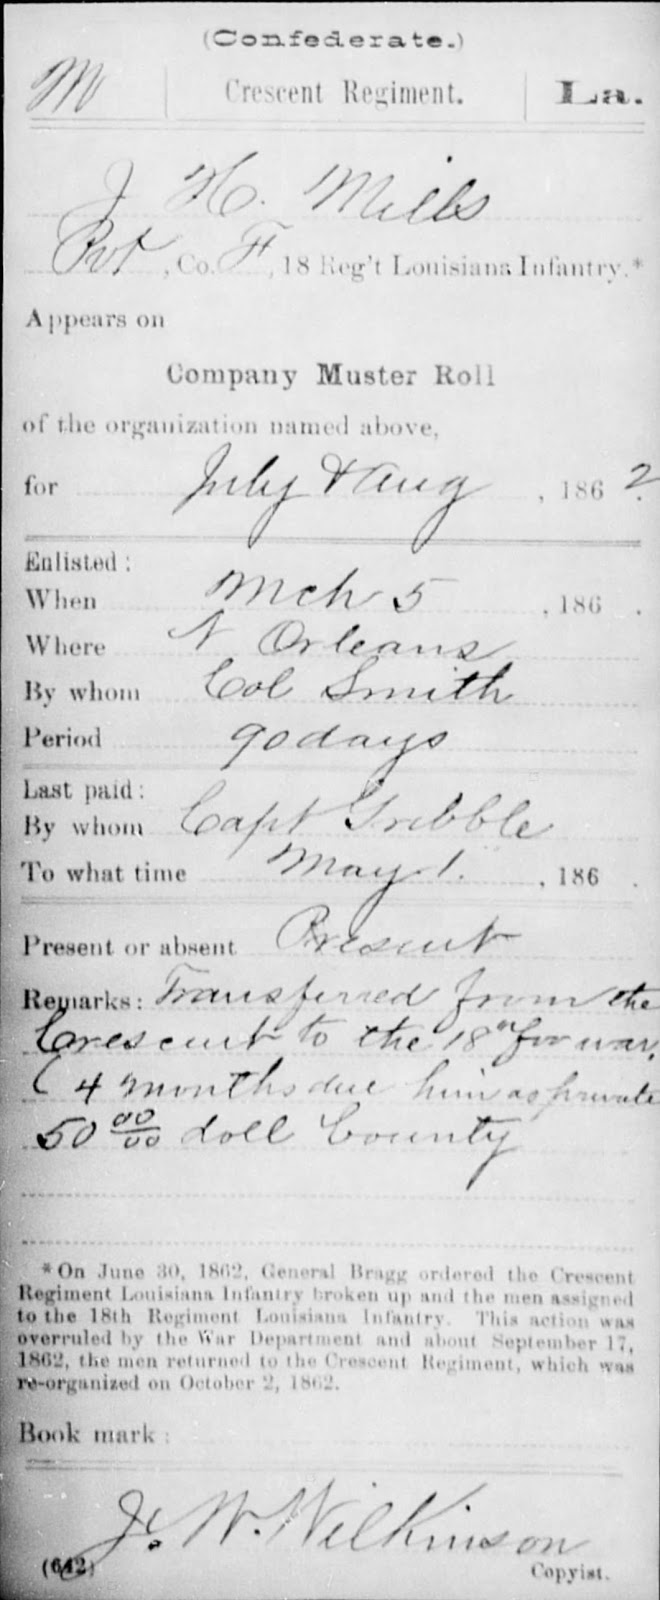 (Confederate.)
M Crescent Regiment. La.
J H. Mills
Pvt, Co. F, 18 Reg't Louisiana Infantry.*
Appears on
Company Muster Roll
of the organization named above,
for July & Aug, 1862.
Enlisted:
When Mch 5, 186 .
Where N Orleans
By whom Col Smith
Period 90 days
Last paid:
By whom Capt Gribble
To what time May 1., 186 .
Present or absent Present
Remarks: Transferred from the
Crescent to the 18" for war.
( 4 months due him as private
50 00/00 doll County
*On June 30, 1862, General Bragg ordered the Crescent
Regiment Louisiana Infantry broken up and the men assigned
to the 18th Regiment Louisiana Infantry. This action was
overruled by the War Department and about September 17,
1862, the men returned to the Crescent Regiment, which was
re-organized on October 2, 1862.
Book mark:
J. W. Wilkinson
(642) Copyist.